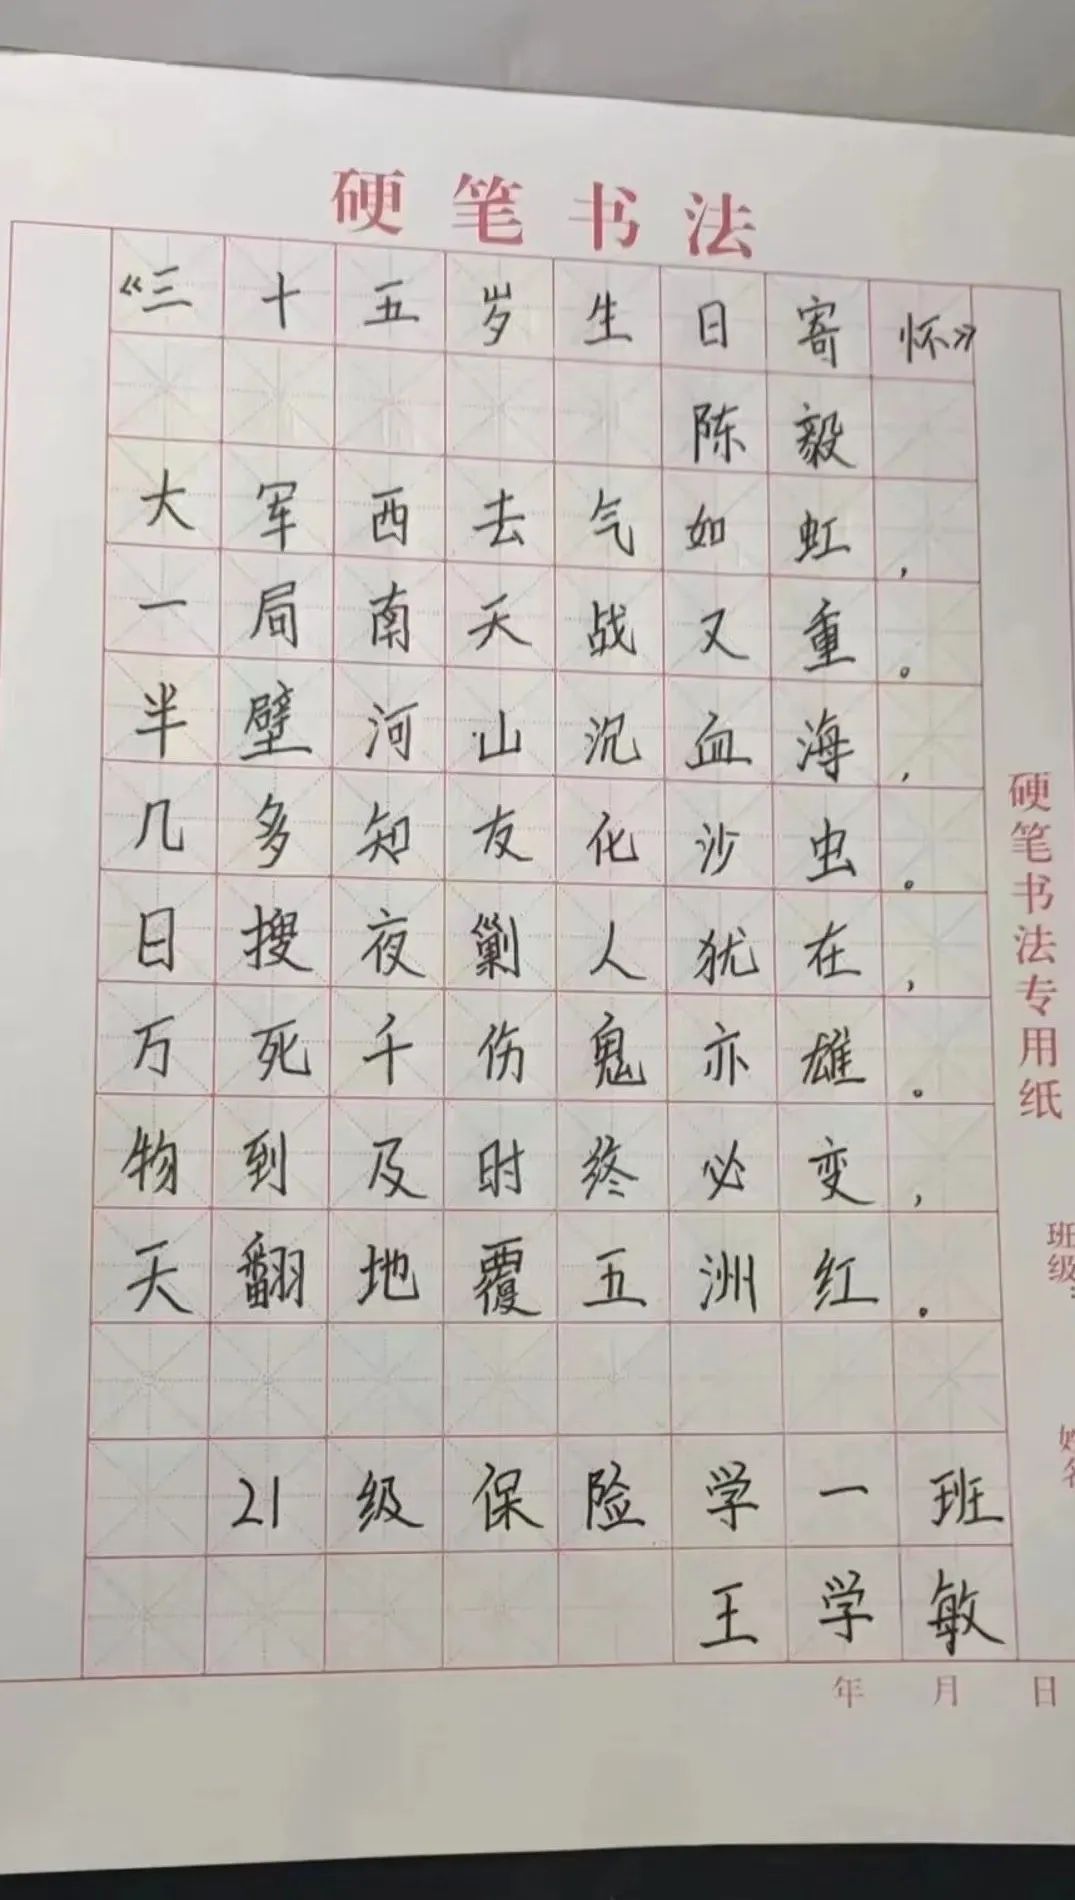 硬笔书法
《三十五岁生日寄怀》
陈毅
大军西去气如虹，
一局南天战又重。
半壁河山沉血海，
几多知友化沙虫。
日搜夜剿人犹在，
万死千伤鬼亦雄。
物到及时终必变，
天翻地覆五洲红。
21级保险学一班
王学敏
年 月 日
硬笔书法专用纸
班级：
姓名